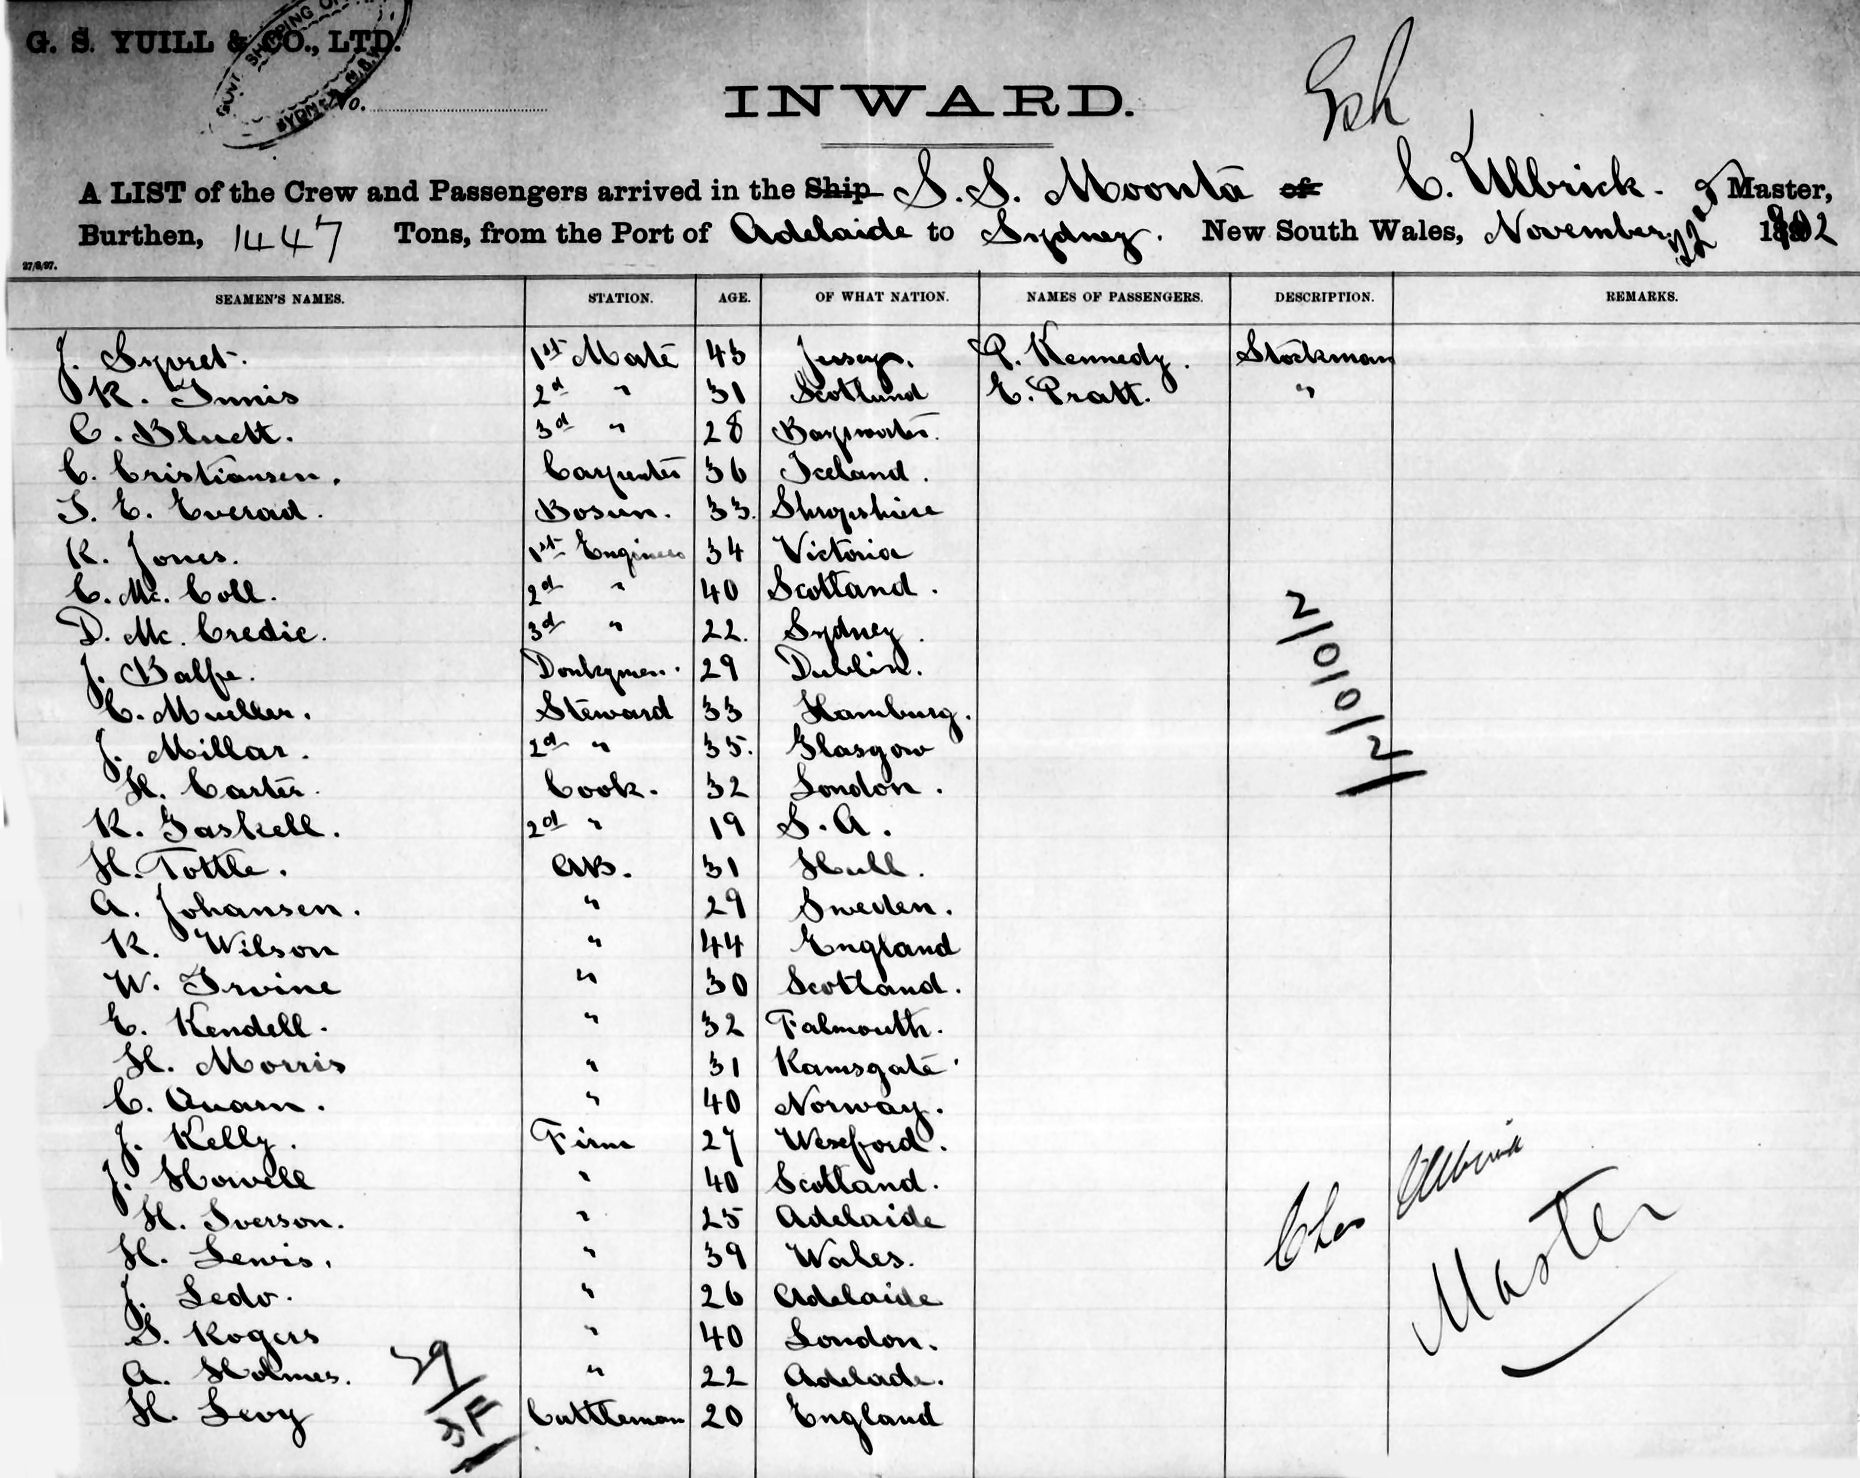 G. S. YUILL & CO., LTD.
GOVT SHIPPING OF
SYDNEY N.S.W.
No.
INWARD.
A LIST of the Crew and Passengers arrived in the Ship S.S. Moonta of C. Ulbrick. Master,
Burthen, 1447 Tons, from the Port of Adelaide to Sydney. New South Wales, November 22nd
27/9/97.
SEAMEN'S NAMES. STATION. AGE. OF WHAT NATION. NAMES OF PASSENGERS. DESCRIPTION. REMARKS.
J. Syvret. 1st Mate 43 Jersey. P. Kennedy. Stockman
R. Innis 2d " 31 Scotland E. Pratt. "
C. Bluett. 3d " 28 Bayswater.
C. Cristiansen. Carpenter 36 Iceland.
T. E. Everad. Bosun. 33. Shropshire
R. Jones. 1st Engineer 34 Victoria
C. Mc. Coll. 2d " 40 Scotland.
D. Mc. Credie. 3d " 22. Sydney.
J. Balfe. Donkymen. 29 Dublin.
C. Mueller. Steward 33 Hamburg.
J. Millar. 2d " 35. Glasgow
H. Carter. Cook. 32 London.
R. Gaskell. 2d " 19 S. A.
H. Tottle. AB. 31 Hull.
A. Johansen. " 29 Sweden.
R. Wilson " 44 England
W. Irvine " 30 Scotland.
E. Kendell. " 32 Falmouth.
H. Morris " 31 Ramsgate
C. Quarn. " 40 Norway.
J. Kelly. Firm 27 Wexford.
J. Howell " 40 Scotland.
H. Iverson. " 25 Adelaide
H. Lewis. " 39 Wales.
J. Ledo. " 26 Adelaide
S. Rogers " 40 London.
A. Holmes. " 22 Adelade.
H. Levy Cattleman 20 England
2/0/0/2/
Chas Ulbrick
Master
29